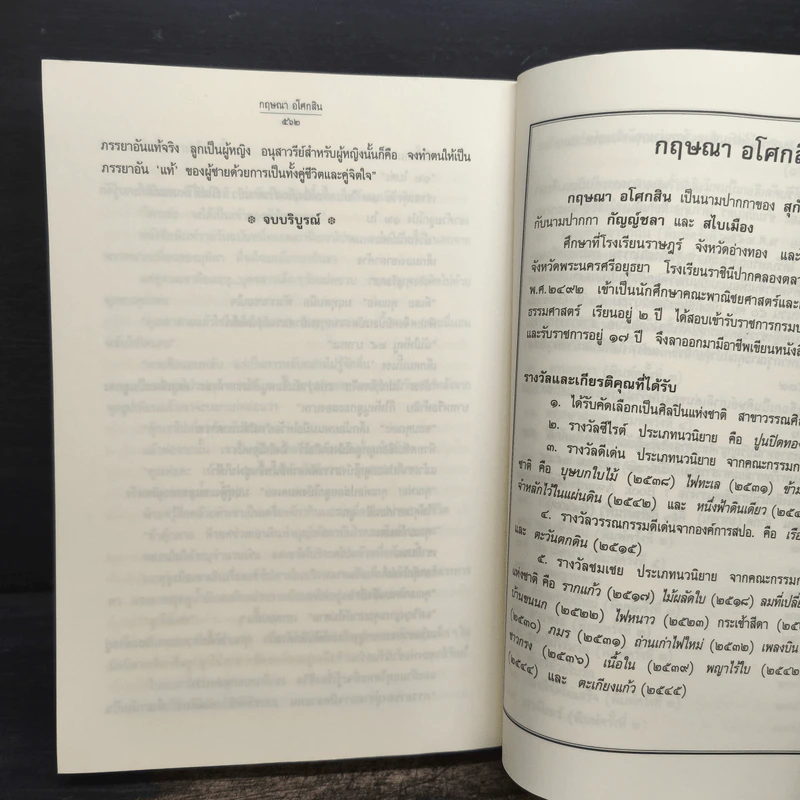 กฤษณา อโศกสิน
๕๖๒
ภรรยาอันแท้จริง ลูกเป็นผู้หญิง อนุสาวรีย์สำหรับผู้หญิงนั้นก็คือ จงทำตนให้เป็น
ภรรยาอัน ‘แท้’ ของผู้ชายด้วยการเป็นทั้งคู่ชีวิตและคู่จิตใจ”
จบบริบูรณ์
กฤษณา อโศกสิ
กฤษณา อโศกสิน เป็นนามปากกาของ
กับนามปากกา กัญญ์ชลา และ สไบเมือง
ศึกษาที่โรงเรียนราษฎร์ จังหวัดอ่างทอง และ
จังหวัดพระนครศรีอยุธยา โรงเรียนราชินีปากคลองตลา
พ.ศ.๒๔๙๒ เข้าเป็นนักศึกษาคณะพาณิชยศาสตร์และ
ธรรมศาสตร์ เรียนอยู่ ๒ ปี ได้สอบเข้ารับราชการกรมป
และรับราชการอยู่ ๑๗ ปี จึงลาออกมามีอาชีพเขียนหนังสื
รางวัลและเกียรติคุณที่ได้รับ
๑. ได้รับคัดเลือกเป็นศิลปินแห่งชาติ สาขาวรรณศิ
๒. รางวัลซีไรต์ ประเภทนวนิยาย คือ ปูนปิดทอง
๓. รางวัลดีเด่น ประเภทนวนิยาย จากคณะกรรมก
ชาติ คือ บุษบกใบไม้ (๒๕๓๘) ไฟทะเล (๒๕๓๑) ข้าม
จำหลักไว้ในแผ่นดิน (๒๕๔๒) และ หนึ่งฟ้าดินเดียว (๒๕๔
๔. รางวัลวรรณกรรมดีเด่นจากองค์การสปอ. คือ เรือ
และ ตะวันตกดิน (๒๕๑๕)
๕. รางวัลชมเชย ประเภทนวนิยาย จากคณะกรรมก
แห่งชาติ คือ รากแก้ว (๒๕๑๗) ไม้ผลัดใบ (๒๕๑๘) ลมที่เปลี่
บ้านขนนก (๒๕๒๒) ไฟหนาว (๒๕๒๓) กระเช้าสีดา (๒๕
(๒๕๓๐) ภมร (๒๕๓๑) ถ่านเก่าไฟใหม่ (๒๕๓๒) เพลงบิน
ชาวกรง (๒๕๓๖) เนื้อใน (๒๕๓๙) พญาไร้ใบ (๒๕๔๒
(๒๕๔๔) และ ตะเกียงแก้ว (๒๕๔๕)